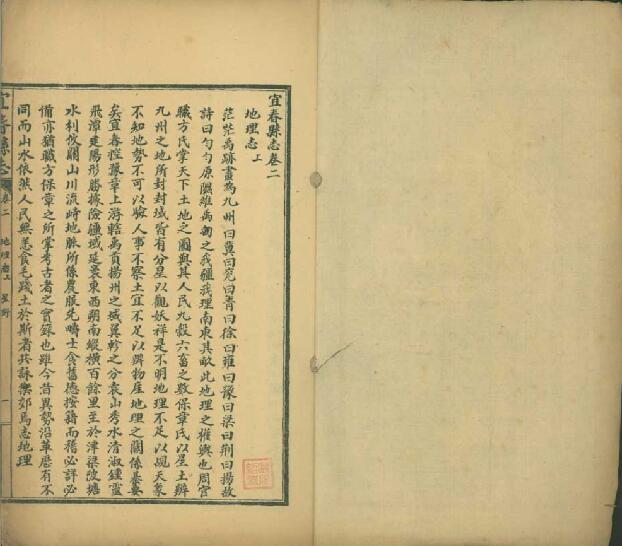 宜春縣志卷二
地理志上
茫茫禹跡畫為九州曰冀曰兗曰青曰徐曰雍曰豫曰梁曰荆曰揚故
詩曰勻勻原隰維禹甸之我疆我理南東其畝此地理之權輿也周官
職方氏掌天下土地之圖與其人民九穀六畜之數保章氏以星土辨
九州之地所封封域皆有分星以觀妖祥是不明地理不足以覘天象
不知地勢不可以驗人事不察土宜不足以辨物產地理之關係綦要
矣宜春控豫章上游轄禹貢揚州之域翼軫之分袁山秀水清淑鍾靈
飛潭建陽形勝據險疆域延袤東西朔南縱横百餘里至於津梁陂塘
水利攸關山川流峙地脈所係農服先疇士食舊德按籍而稽必詳必
備亦猶職方保章之所掌考古者之實錄也雖今昔異勢沿革歷有不
同而山水依然人民無恙食毛踐土於斯者共詠樂郊焉志地理
宜春縣志 卷二 地理志上 星野 一